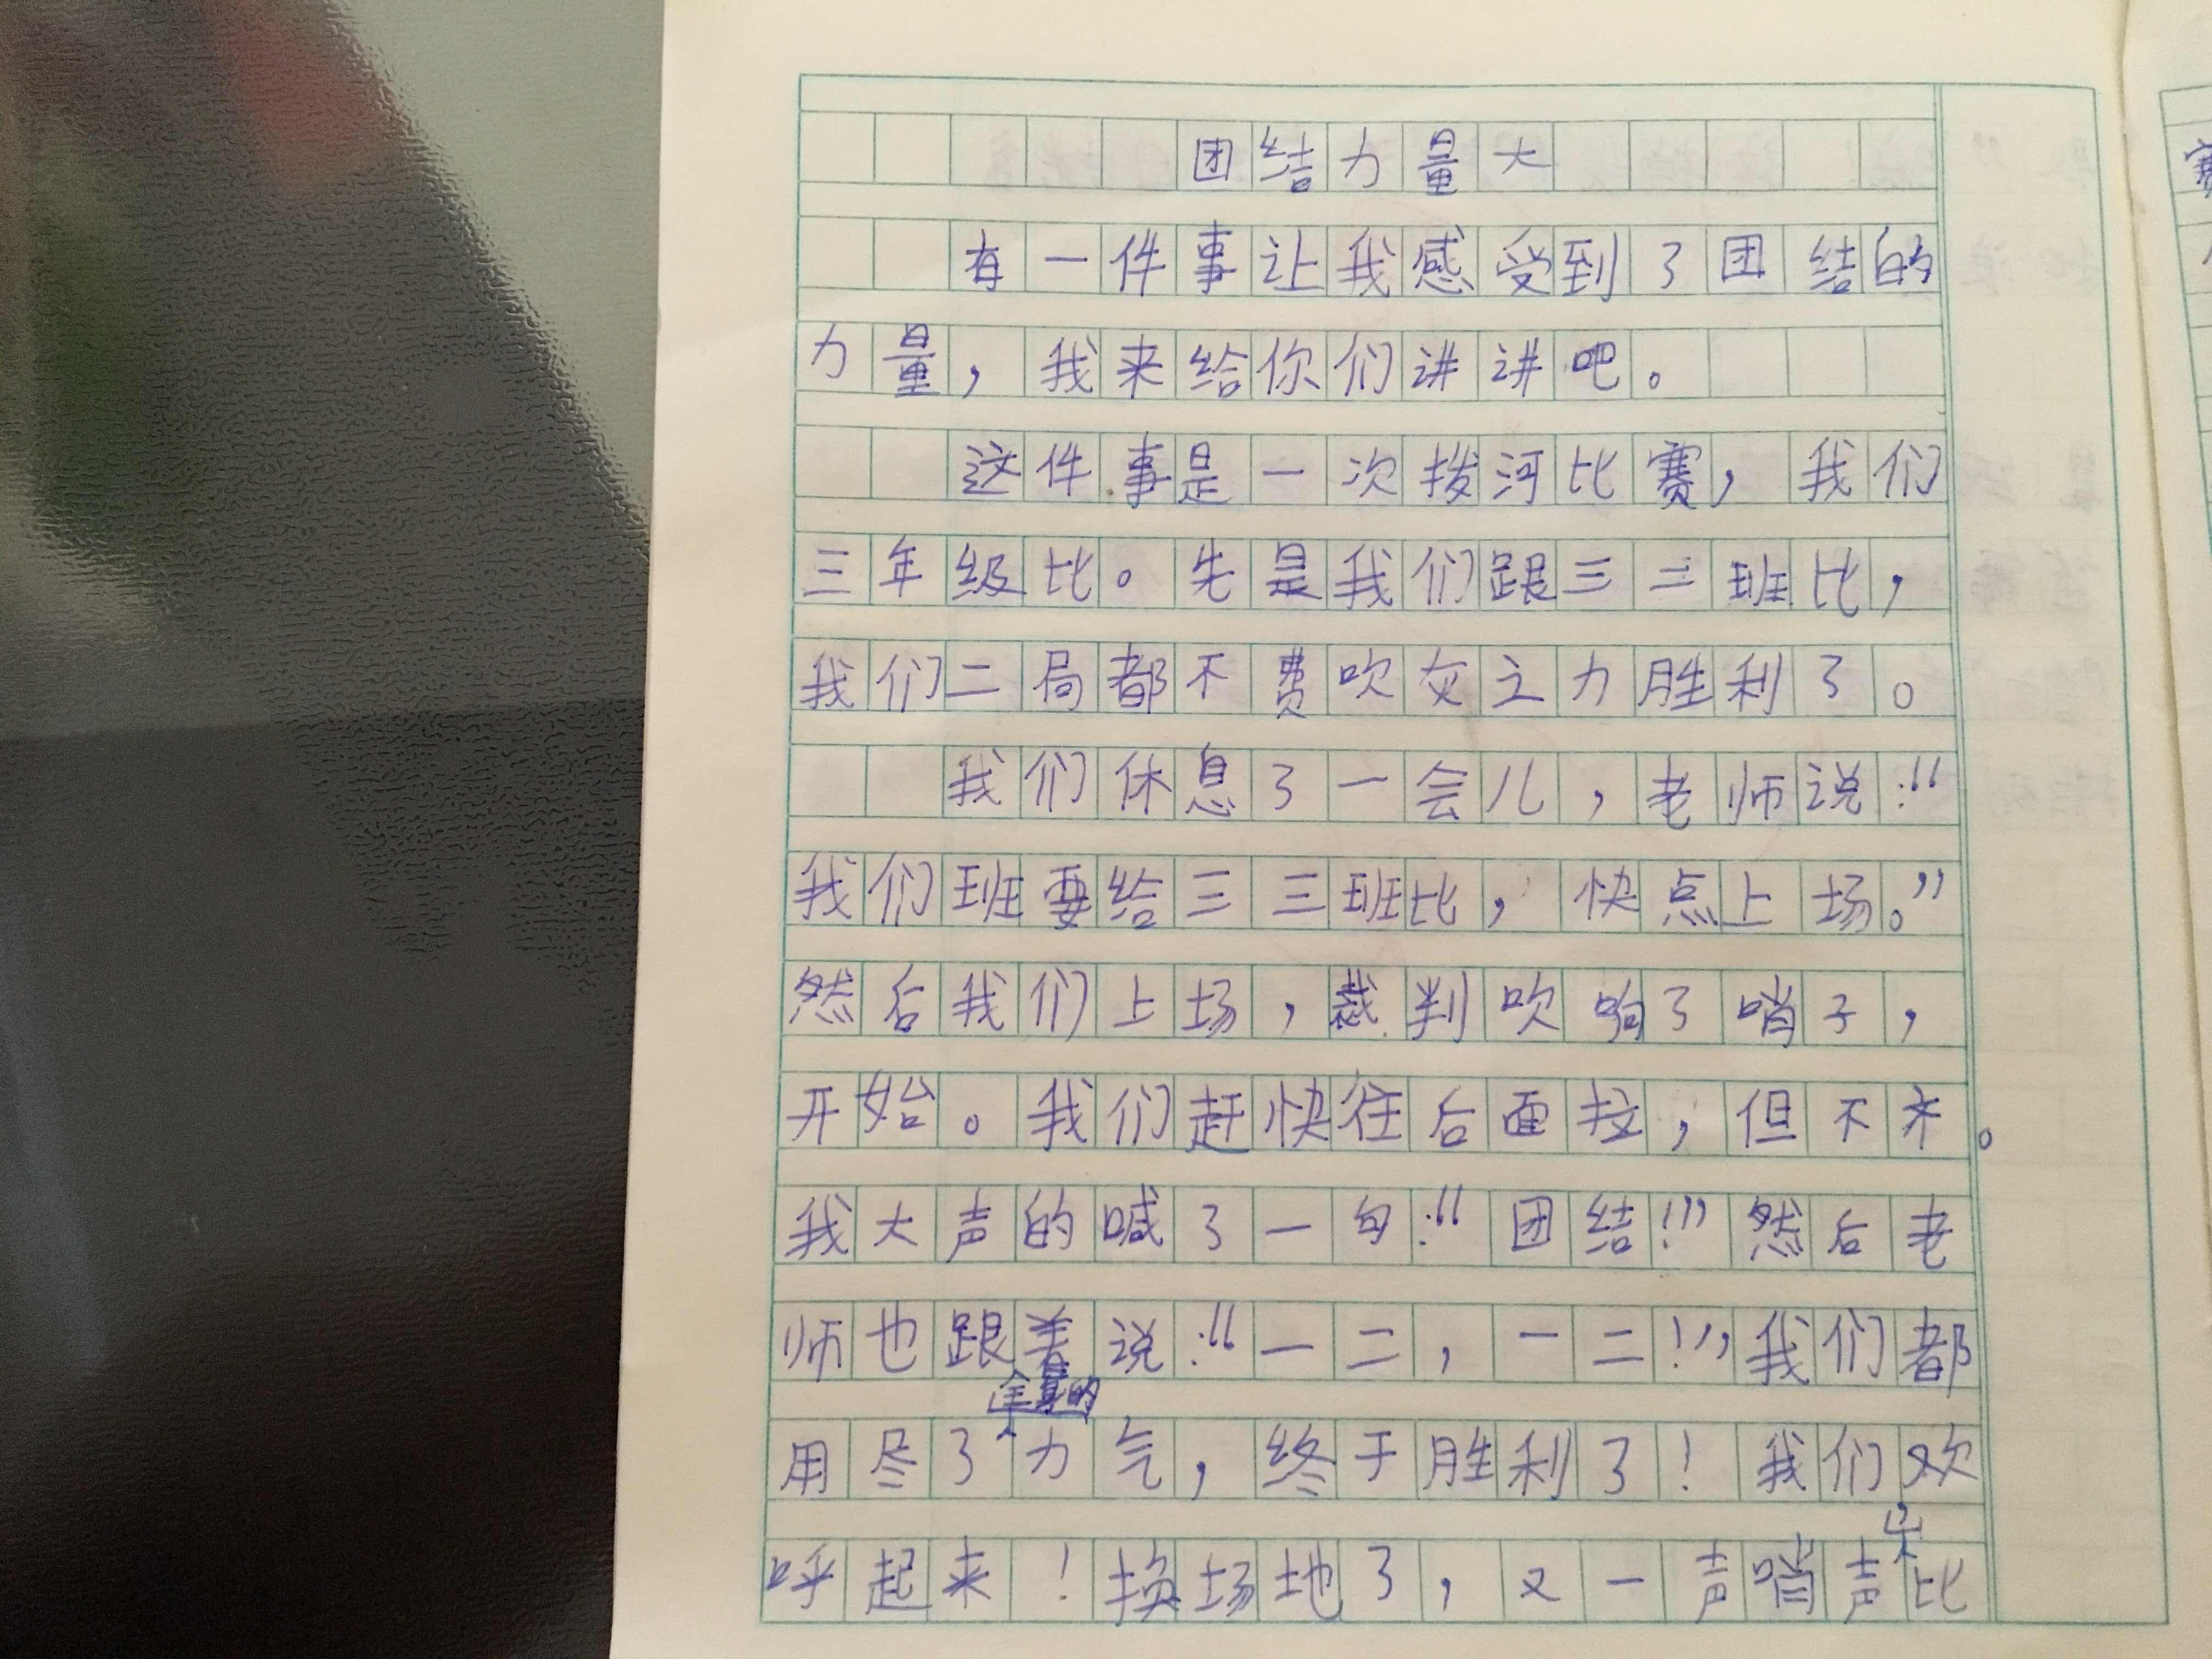 团结力量大
有一件事让我感受到了团结的
力量，我来给你们讲讲吧。
这件事是一次拨河比赛，我们
三年级比。先是我们跟三二班比，
我们二局都不费吹灰之力胜利了。
我们休息了一会儿，老师说：“
我们班要给三三班比，快点上场。”
然后我们上场，裁判吹响了哨子，
开始。我们赶快往后面拉，但不齐。
我大声的喊了一句：“团结！”然后老
师也跟着说：“一二，一二！”我们都
全身的
用尽了力气，终于胜利了！我们欢
呼起来！换场地了，又一声哨声，比
赛